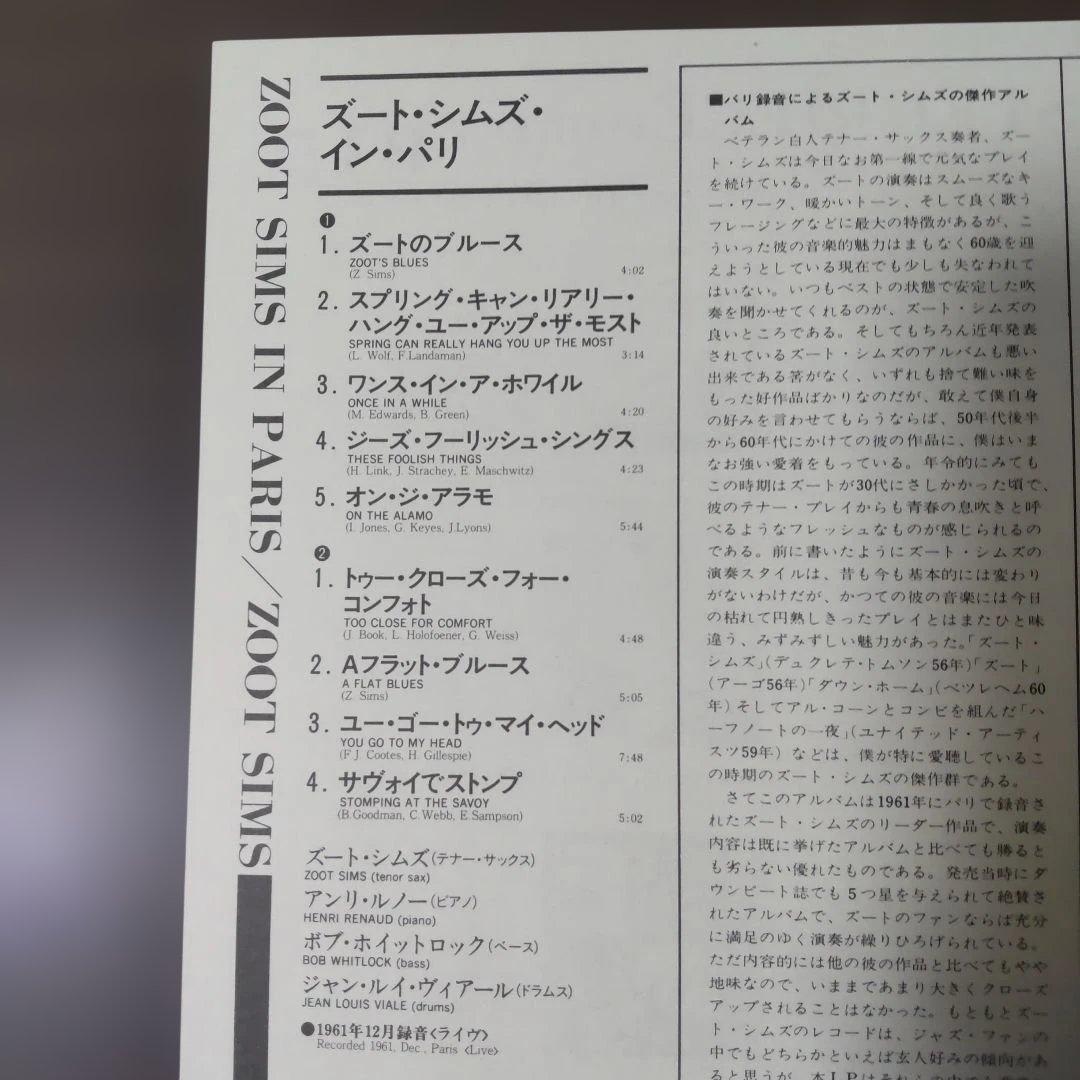 ZOOT SIMS IN PARIS/ZOOT SIMS
ズート・シムズ・
イン・パリ
❶
1. ズートのブルース
ZOOT'S BLUES
(Z. Sims) 4:02
2. スプリング・キャン・リアリー・
ハング・ユー・アップ・ザ・モスト
SPRING CAN REALLY HANG YOU UP THE MOST
(L. Wolf, F.Landaman) 3:14
3. ワンス・イン・ア・ホワイル
ONCE IN A WHILE
(M. Edwards, B. Green) 4:20
4. ジーズ・フーリッシュ・シングス
THESE FOOLISH THINGS
(H. Link, J. Strachey, E. Maschwitz) 4:23
5. オン・ジ・アラモ
ON THE ALAMO
(I. Jones, G. Keyes, J.Lyons) 5:44
❷
1. トゥー・クローズ・フォー・
コンフォト
TOO CLOSE FOR COMFORT
(J. Book, L. Holofoener, G. Weiss) 4:48
2. Aフラット・ブルース
A FLAT BLUES
(Z. Sims) 5:05
3. ユー・ゴー・トゥ・マイ・ヘッド
YOU GO TO MY HEAD
(F.J. Cootes, H. Gillespie) 7:48
4. サヴォイでストンプ
STOMPING AT THE SAVOY
(B.Goodman, C.Webb, E.Sampson) 5:02
ズート・シムズ(テナー・サックス)
ZOOT SIMS (tenor sax)
アンリ・ルノー(ピアノ)
HENRI RENAUD (piano)
ボブ・ホイットロック(ベース)
BOB WHITLOCK (bass)
ジャン・ルイ・ヴィアール(ドラムス)
JEAN LOUIS VIALE (drums)
●1961年12月録音〈ライヴ〉
Recorded 1961, Dec., Paris 〈Live〉
■パリ録音によるズート・シムズの傑作アル
バム
ベテラン白人テナー・サックス奏者、ズー
ト・シムズは今日なお第一線で元気なプレイ
を続けている。ズートの演奏はスムーズなキ
ー・ワーク、暖かいトーン、そして良く歌う
フレージングなどに最大の特徴があるが、こ
ういった彼の音楽的魅力はまもなく60歳を迎
えようとしている現在でも少しも失なわれて
はいない。いつもベストの状態で安定した吹
奏を聞かせてくれるのが、ズート・シムズの
良いところである。そしてもちろん近年発表
されているズート・シムズのアルバムも悪い
出来である筈がなく、いずれも捨て難い味を
もった好作品ばかりなのだが、敢えて僕自身
の好みを言わせてもらうならば、50年代後半
から60年代にかけての彼の作品に、僕はいま
なお強い愛着をもっている。年令的にみても
この時期はズートが30代にさしかかった頃で、
彼のテナー・プレイからも青春の息吹きと呼
べるようなフレッシュなものが感じられるの
である。前に書いたようにズート・シムズの
演奏スタイルは、昔も今も基本的には変わり
がないわけだが、かつての彼の音楽には今日
の枯れて円熟しきったプレイとはまたひと味
違う、みずみずしい魅力があった。「ズート・
シムズ」(デュクレテ・トムソン56年)「ズート」
(アーゴ56年)「ダウン・ホーム」(ベツレヘム60
年) そしてアル・コーンとコンビを組んだ「ハ
ーフノートの一夜」(ユナイテッド・アーティ
スツ59年) などは、僕が特に愛聴しているこ
の時期のズート・シムズの傑作群である。
さてこのアルバムは1961年にパリで録音さ
れたズート・シムズのリーダー作品で、演奏
内容は既に挙げたアルバムと比べても勝ると
も劣らない優れたものである。発売当時にダ
ウンビート誌でも5つ星を与えられて絶賛さ
れたアルバムで、ズートのファンならば充分
に満足のゆく演奏が繰りひろげられている。
ただ内容的には他の彼の作品と比べてもやや
地味なので、いままであまり大きくクローズ
アップされることはなかった。もともとズー
ト・シムズのレコードは、ジャズ・ファンの
中でもどちらかといえば玄人好みの傾向があ
ると思うが、本LPはそれらの中で